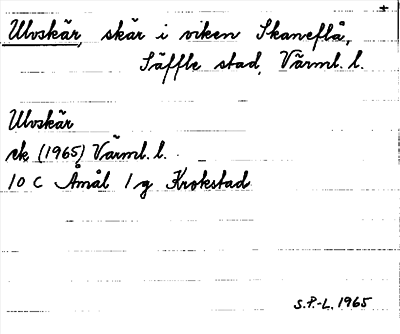 +
Ulvskär, skär i viken Skaneflå,
Säffle stad, Värml. l.
Ulvskär
ek (1965) Värml. l.
10 C Åmål 1 g Krokstad
S.P.-L. 1965